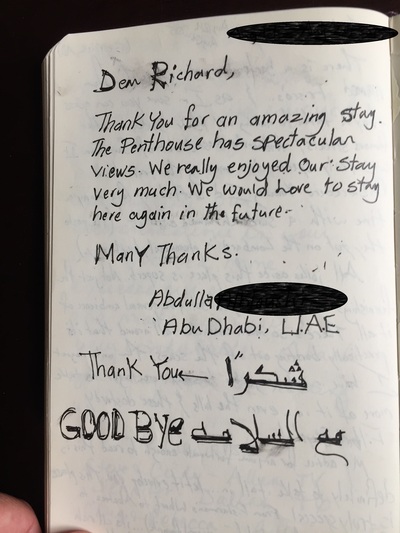 Dear Richard,
Thank You for an amazing stay.
The Penthouse has spectacular
views. We really enjoyed Our Stay
very much. We would love to stay
here again in the future.
Many Thanks.
Abdulla
Abu Dhabi, U.A.E
Thank You← شكراً
GOOD BYe مع السلامه